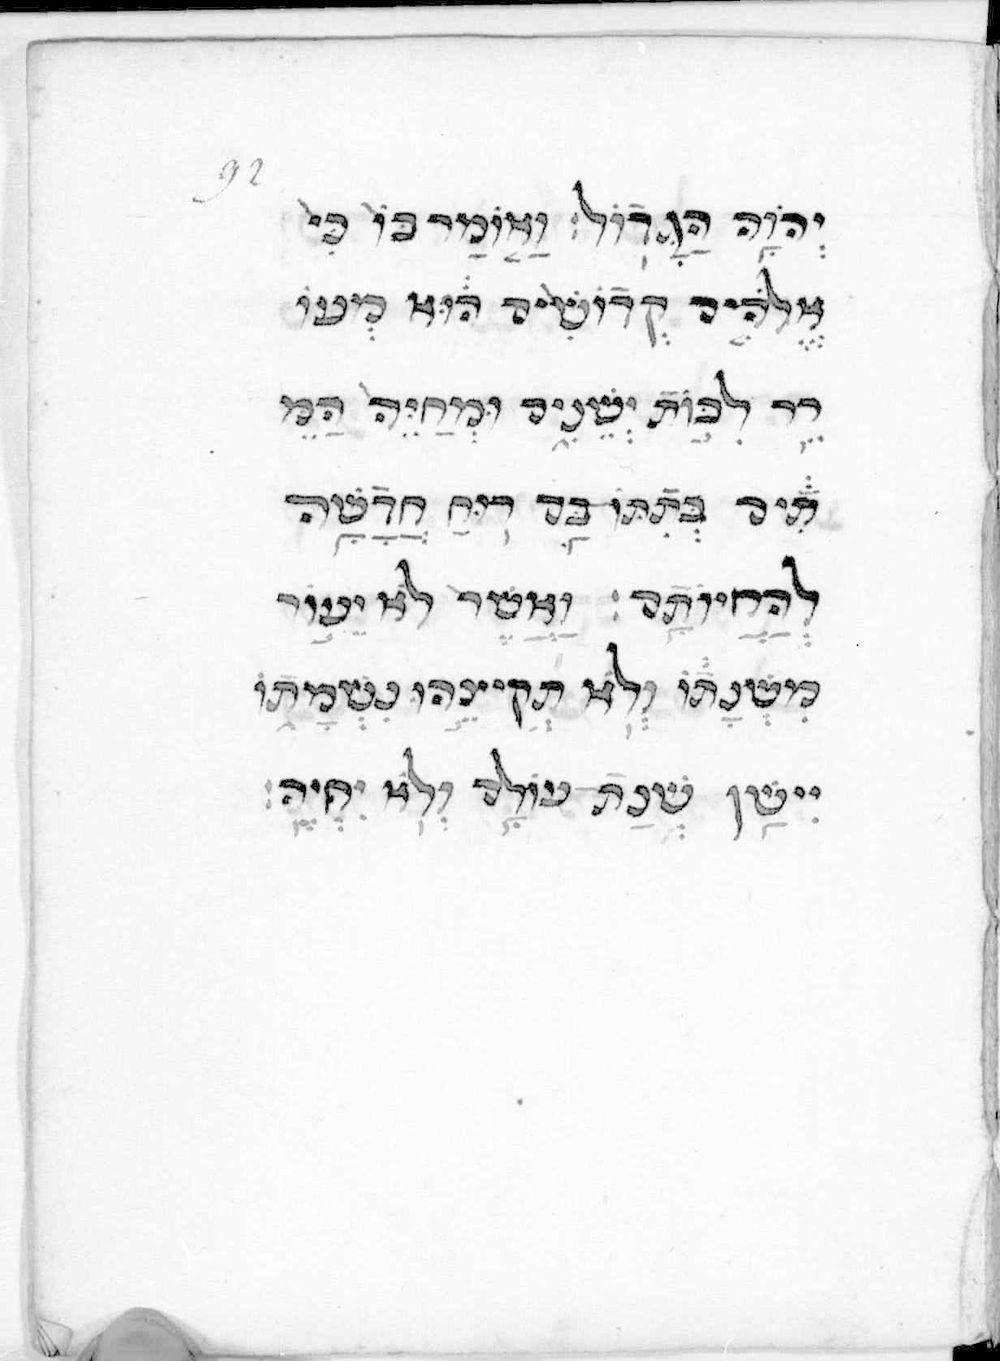 92
יְהוָֹה הַגָּדוֹל: וַיֹּאמַר בּוֹ כִּי
אֱלֹהִים קְדוֹשִׁים הוּא מְעוֹ
רֵר לִבּוֹת יְשֵׁנִים וּמְחַיֶּה הַמֵּ
תִים בְּתִתּוֹ בָּם רוּחַ חֲדָשָׁה
לְהַחֲיוֹתָם: וַאֲשֶׁר לֹא יֵעוֹר
מִשְּׁנָתוֹ וְלֹא תְקִיצֵהוּ נִשְׁמָתוֹ
יִישַׁן שְׁנַת עוֹלָם וְלֹא יִחְיֶה: